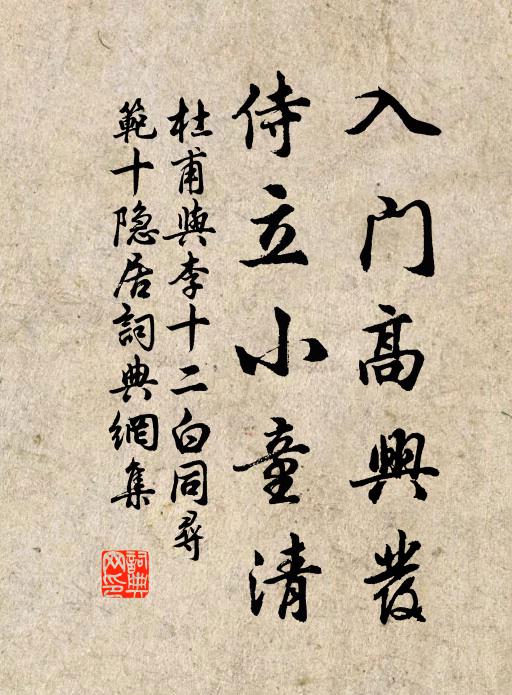 入門高興發
侍立小童清
杜甫與李十二白同尋
範十隐居詞典網集
詞典网印